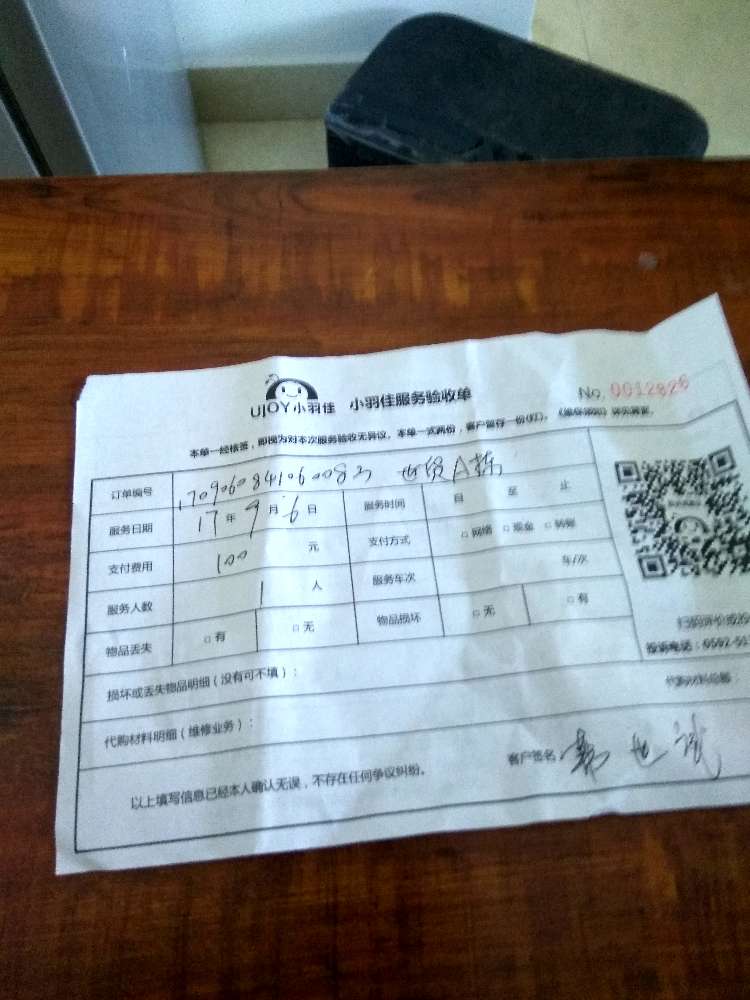 UJOY小羽佳 小羽佳服务验收单 No. 0012826
本单一经核签，即视为对本次服务验收无异议。本单一式两份，客户留存一份
订单编号 世贸A栋
服务日期 17年9月6日 服务时间 自 至 止
支付费用 100 元 支付方式 □网络 □现金 □转账
服务人数 1 人 服务车次 车/次
物品丢失 □有 □无 物品损坏 □无 □有
投诉电话：0592-51
损坏或丢失物品明细（没有可不填）：
代购材料明细（维修业务）： 代购材料总额：
以上填写信息已经本人确认无误，不存在任何争议纠纷。 客户签名